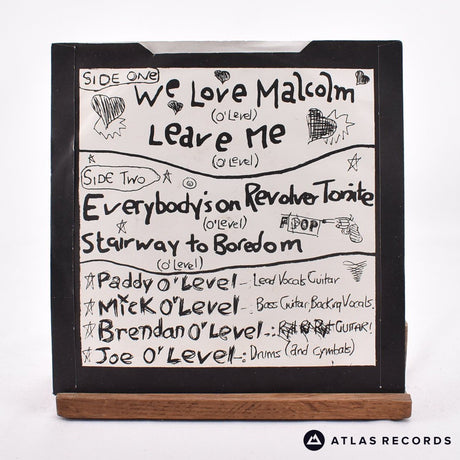 SIDE ONE
We Love Malcolm
(O'Level)
Leave Me
(O'Level)
SIDE TWO
Everybody's on Revolver Tonite
(O'Level)
POP
Stairway to Boredom
(O'Level)
Paddy O'Level - Lead Vocals Guitar
Mick O'Level - Bass Guitar Backing Vocals.
Brendan O'Level -: GUITAR!
Joe O'Level -: Drums (and cymbals)
ATLAS RECORDS